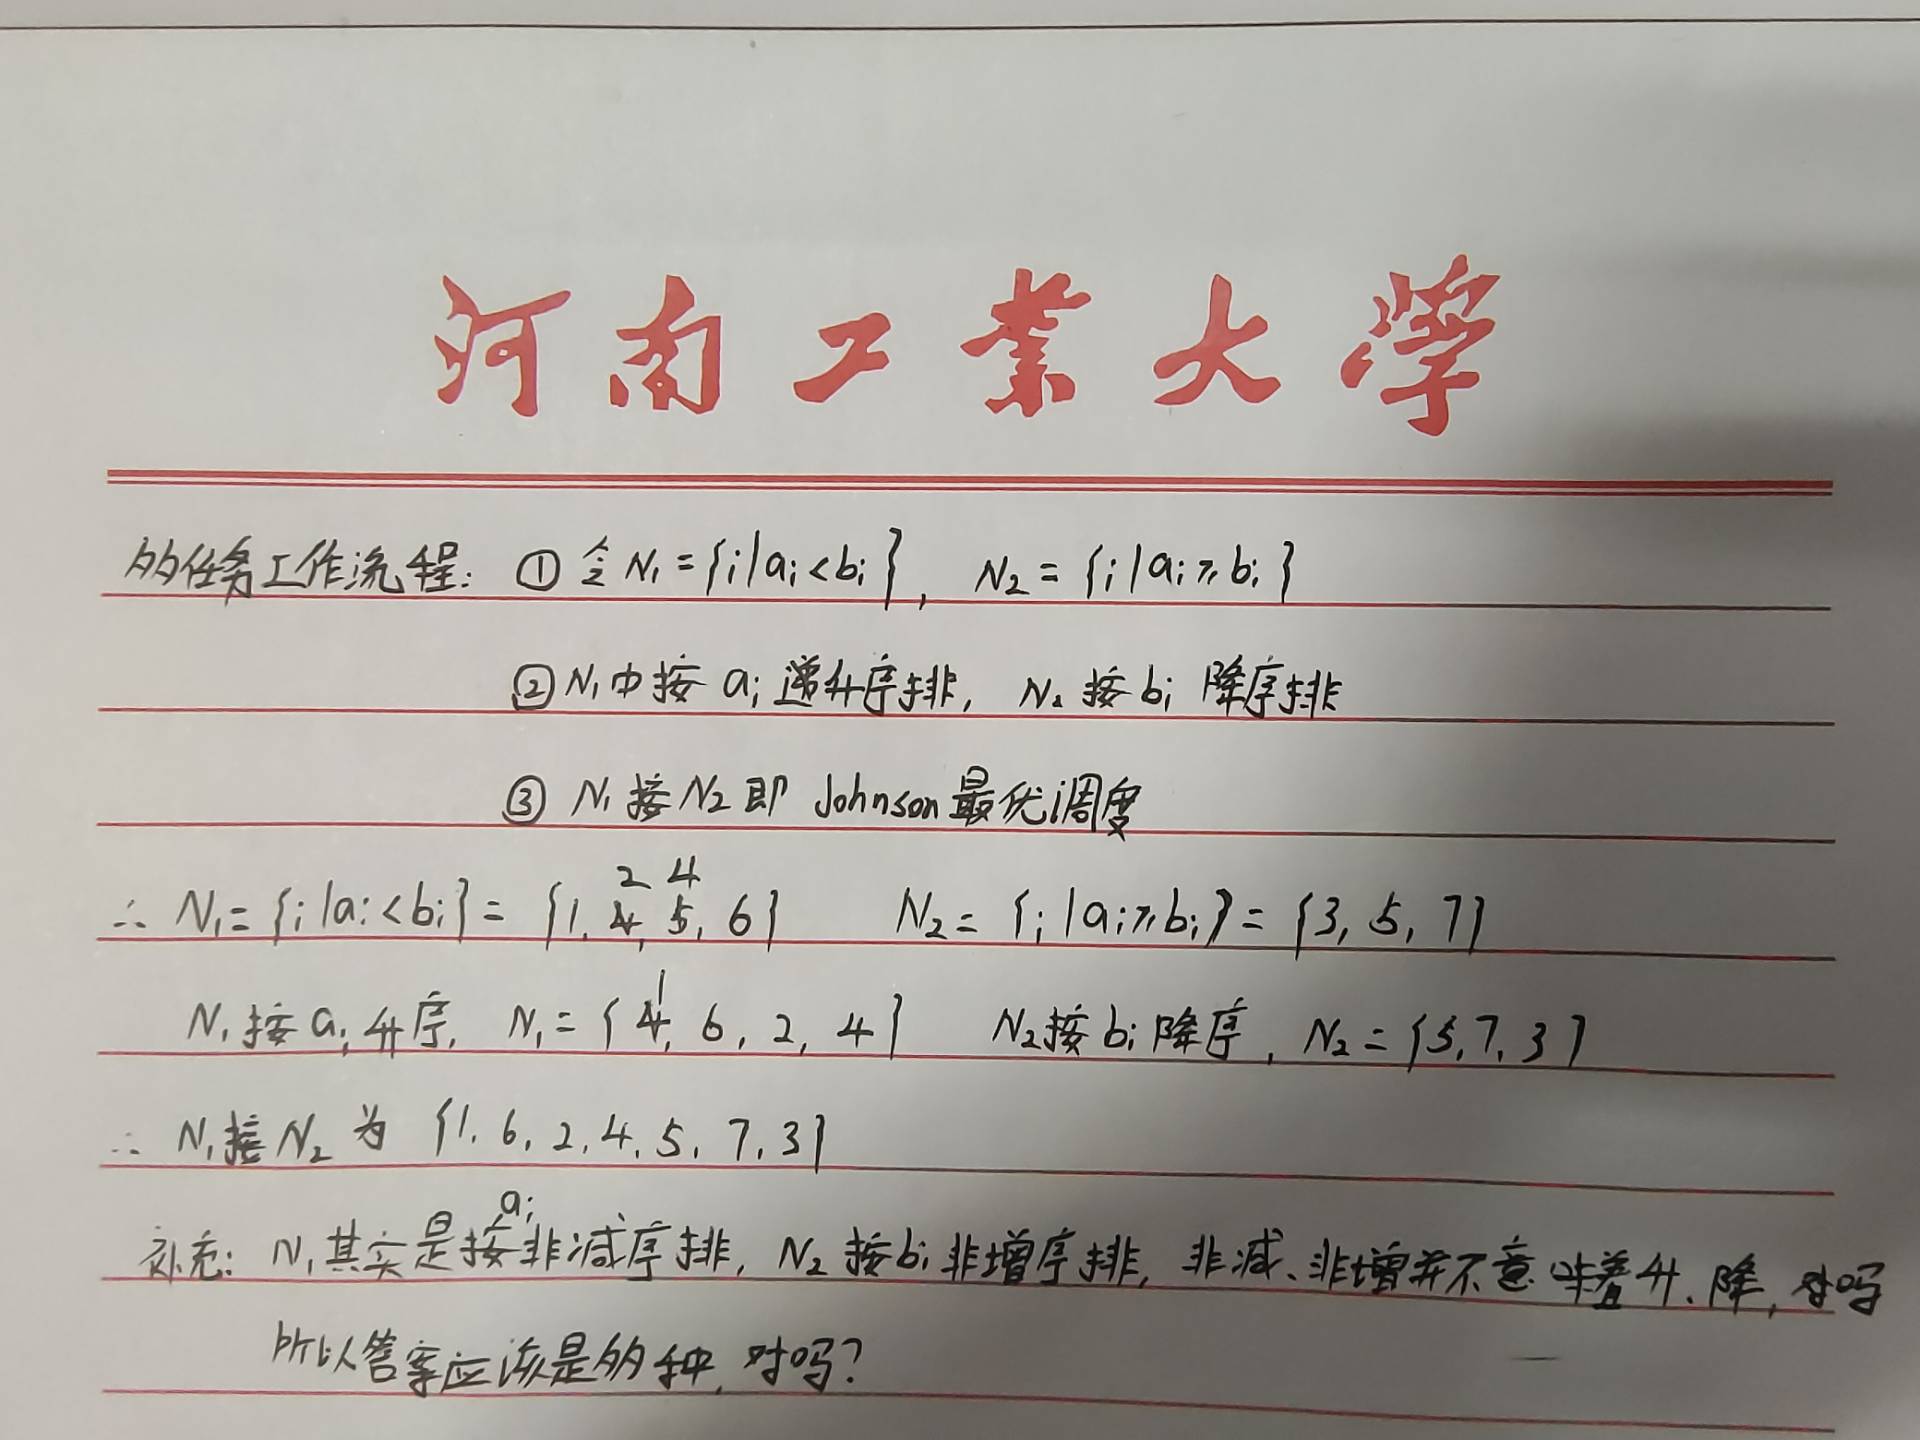 河南工业大学
的任务工作流程: ① 令 N₁={i|aᵢ<bᵢ}, N₂={i|aᵢ≥bᵢ}
② N₁中按 aᵢ 递升序排, N₂ 按 bᵢ 降序排
③ N₁ 接 N₂ 即 Johnson 最优调度
∴ N₁={i|aᵢ<bᵢ}={1, 2, 4, 6} N₂={i|aᵢ≥bᵢ}={3, 5, 7}
N₁按aᵢ升序, N₁={1, 6, 2, 4} N₂按bᵢ降序, N₂={5, 7, 3}
∴ N₁接N₂ 为 {1, 6, 2, 4, 5, 7, 3}
补充: N₁其实是按aᵢ非减序排, N₂ 按bᵢ非增序排, 非减、非增并不意味着升、降, 对吗
所以答案应该是多种, 对吗?